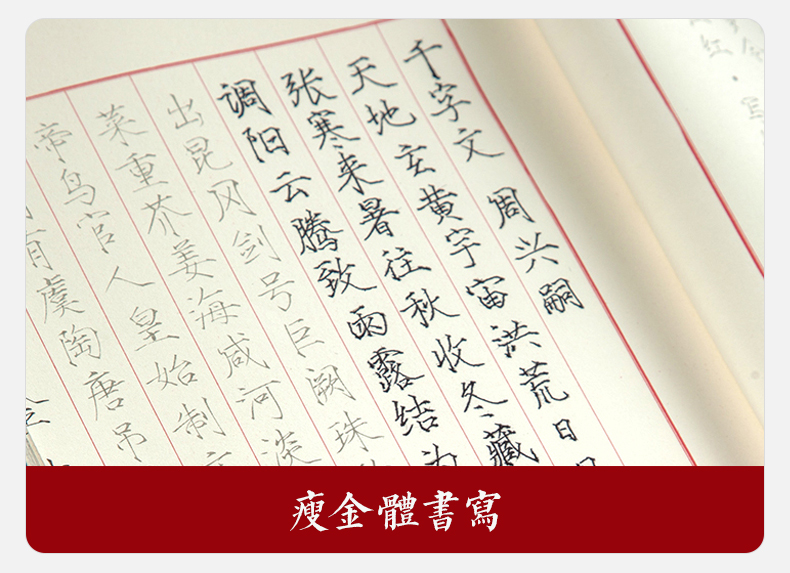 千字文 周兴嗣
天地玄黄宇宙洪荒日
张寒来暑往秋收冬藏
调阳云腾致雨露结为
出昆冈剑号巨阙珠
菜重芥姜海咸河淡
帝鸟官人皇始制
有虞陶唐吊
瘦金體書寫